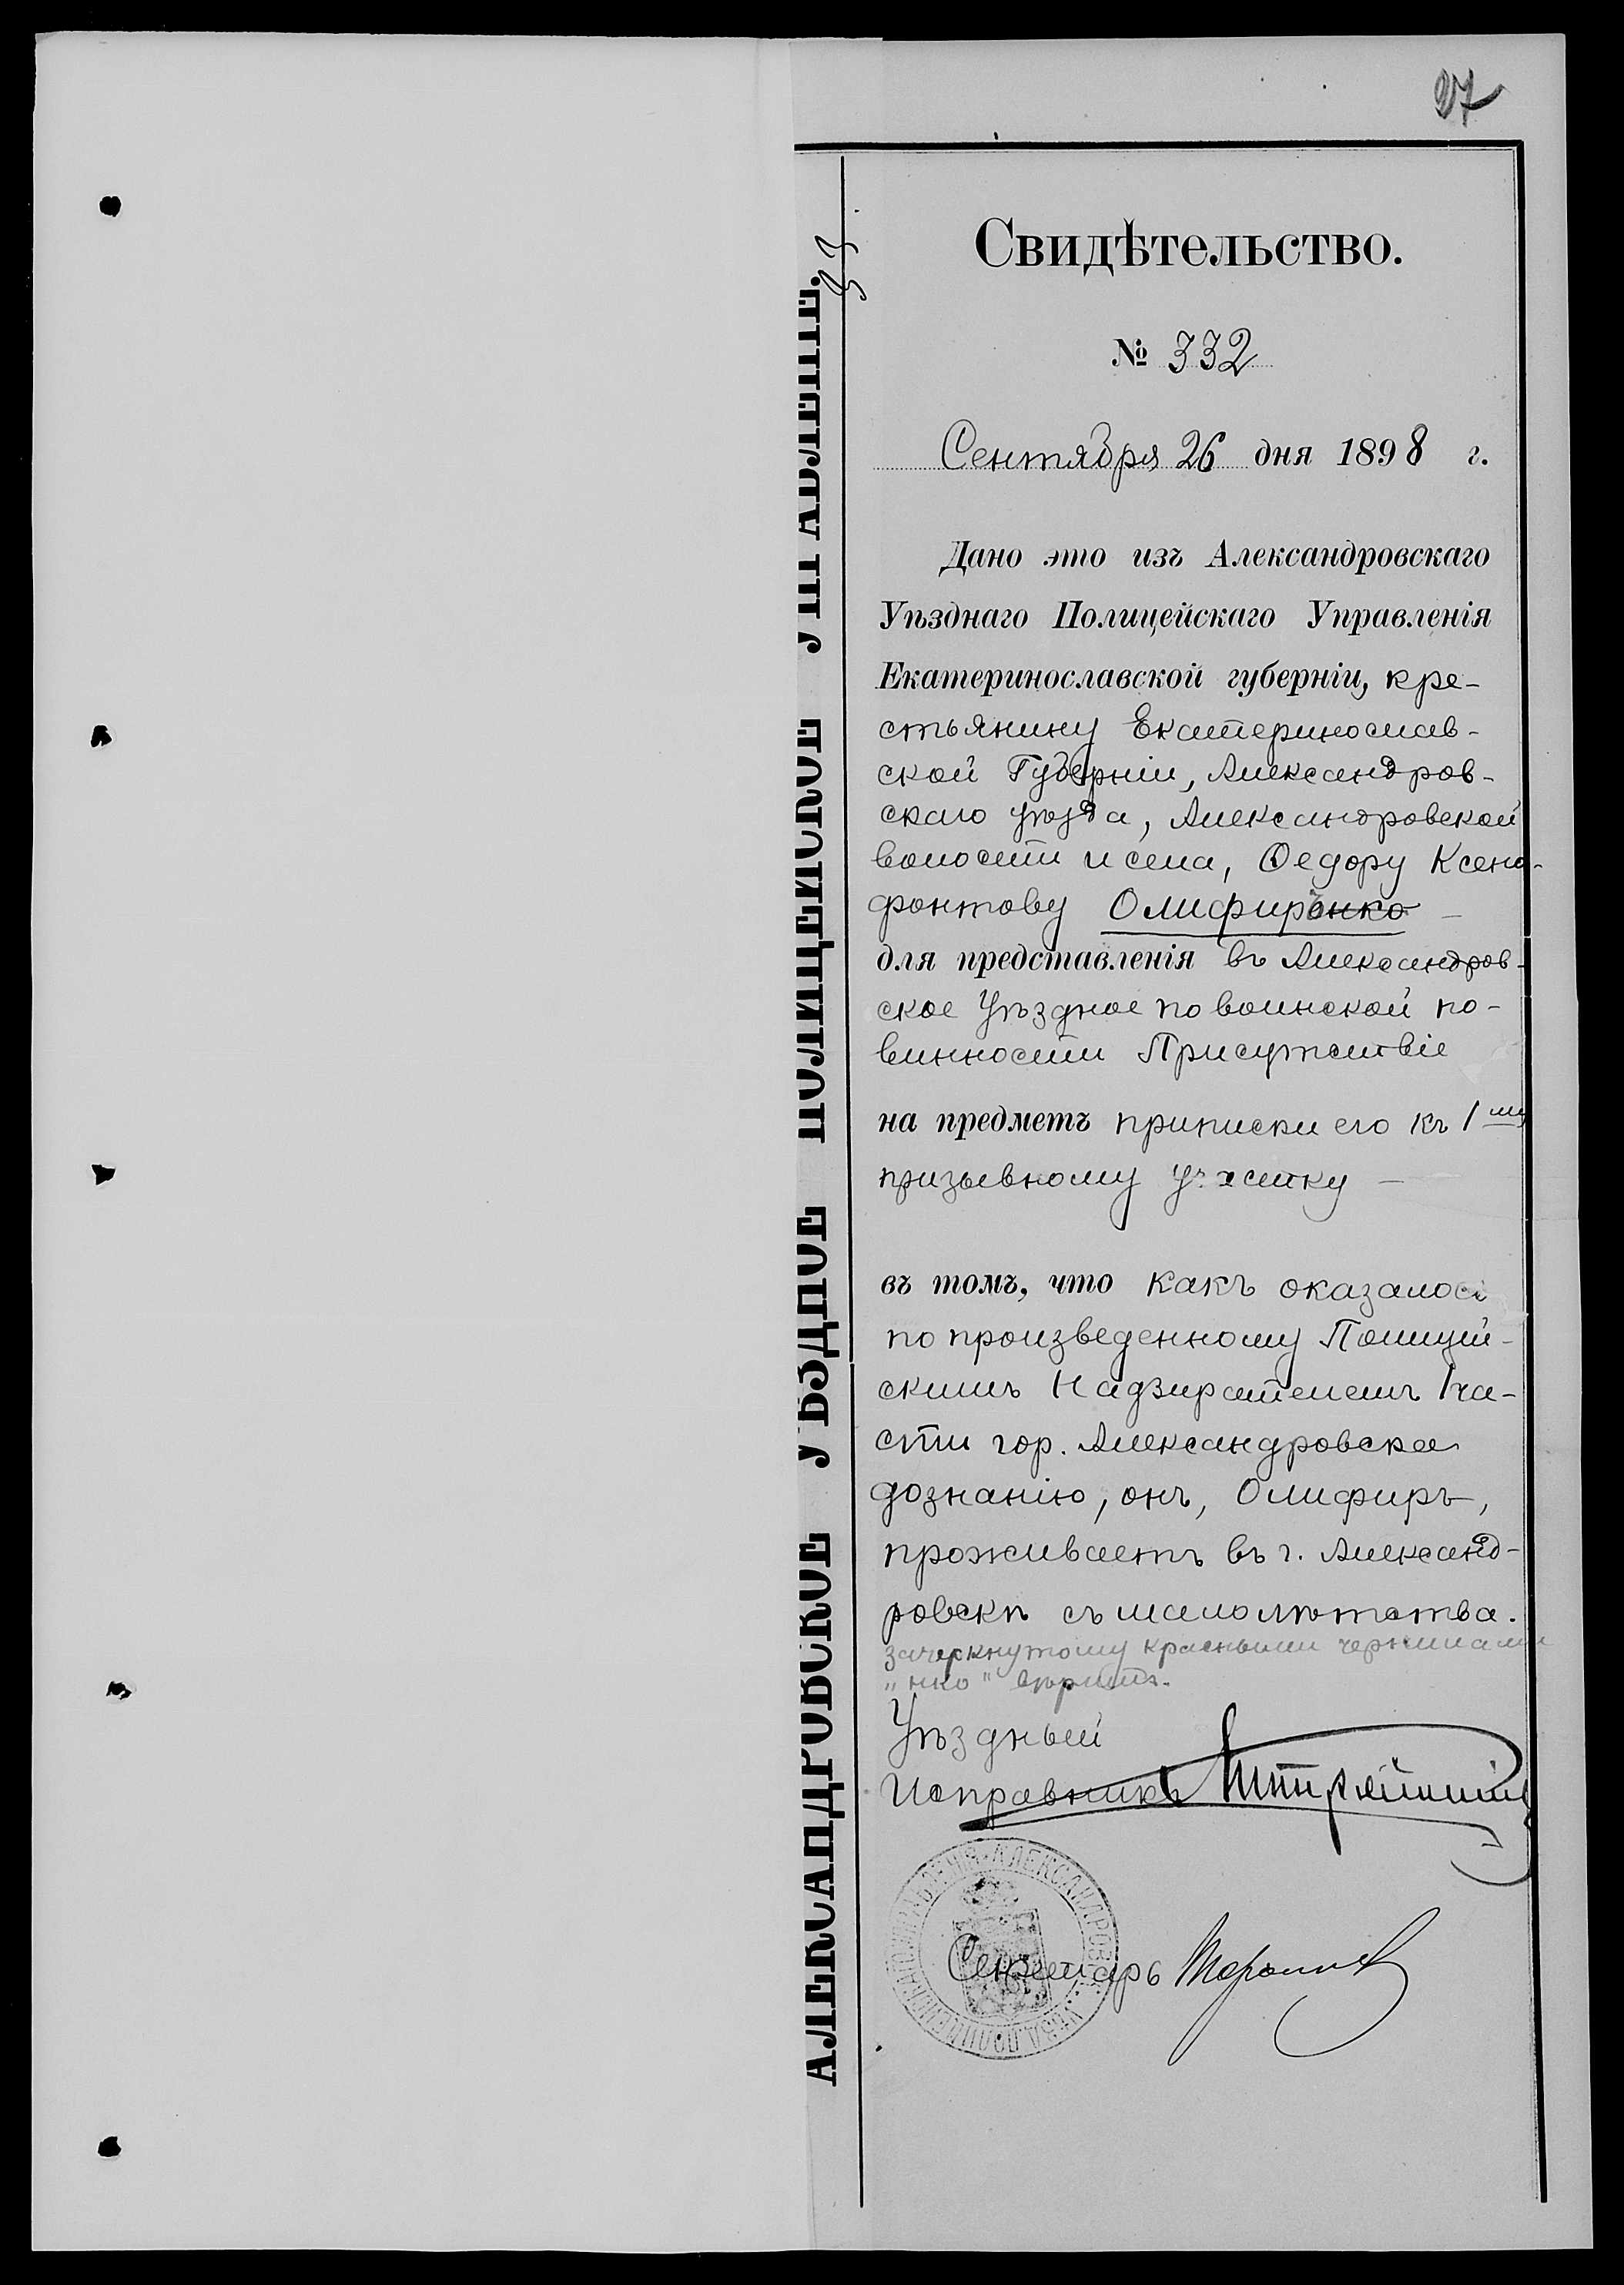 27
Свидѣтельство.
№ 332
Сентября 26 дня 1898 г.
Дано это изъ Александровскаго
Уѣзднаго Полицейскаго Управленія
Екатеринославской губерніи, кре-
стьянину Екатеринослав-
ской Губерніи, Александров-
скаго уѣзда, Александровской
волости и села, Федору Ксено-
фонтову Олифиръенко
для представленія въ Александров-
ское Уѣздное по воинской по-
винности Присутствіе
на предметъ приписки его къ 1му
призывному участку —
въ томъ, что какъ оказалось
по произведенному Полицей-
скимъ Надзирателемъ 1 ча-
сти гор. Александровска
дознанію, онъ, Олифиръ,
проживаетъ въ г. Александ-
ровскѣ съ малолѣтства.
зачеркнутому красными чернилами
„нко" вѣрить.
Уѣздный
Исправникъ
Секретарь
АЛЕКСАНДРОВСКОЕ УѢЗДНОЕ ПОЛИЦЕЙСКОЕ УПРАВЛЕНІЕ.